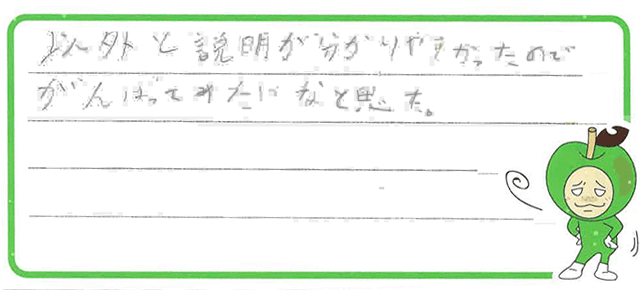 以外と説明が分かりやすかったので
がんばってみたいなと思た。